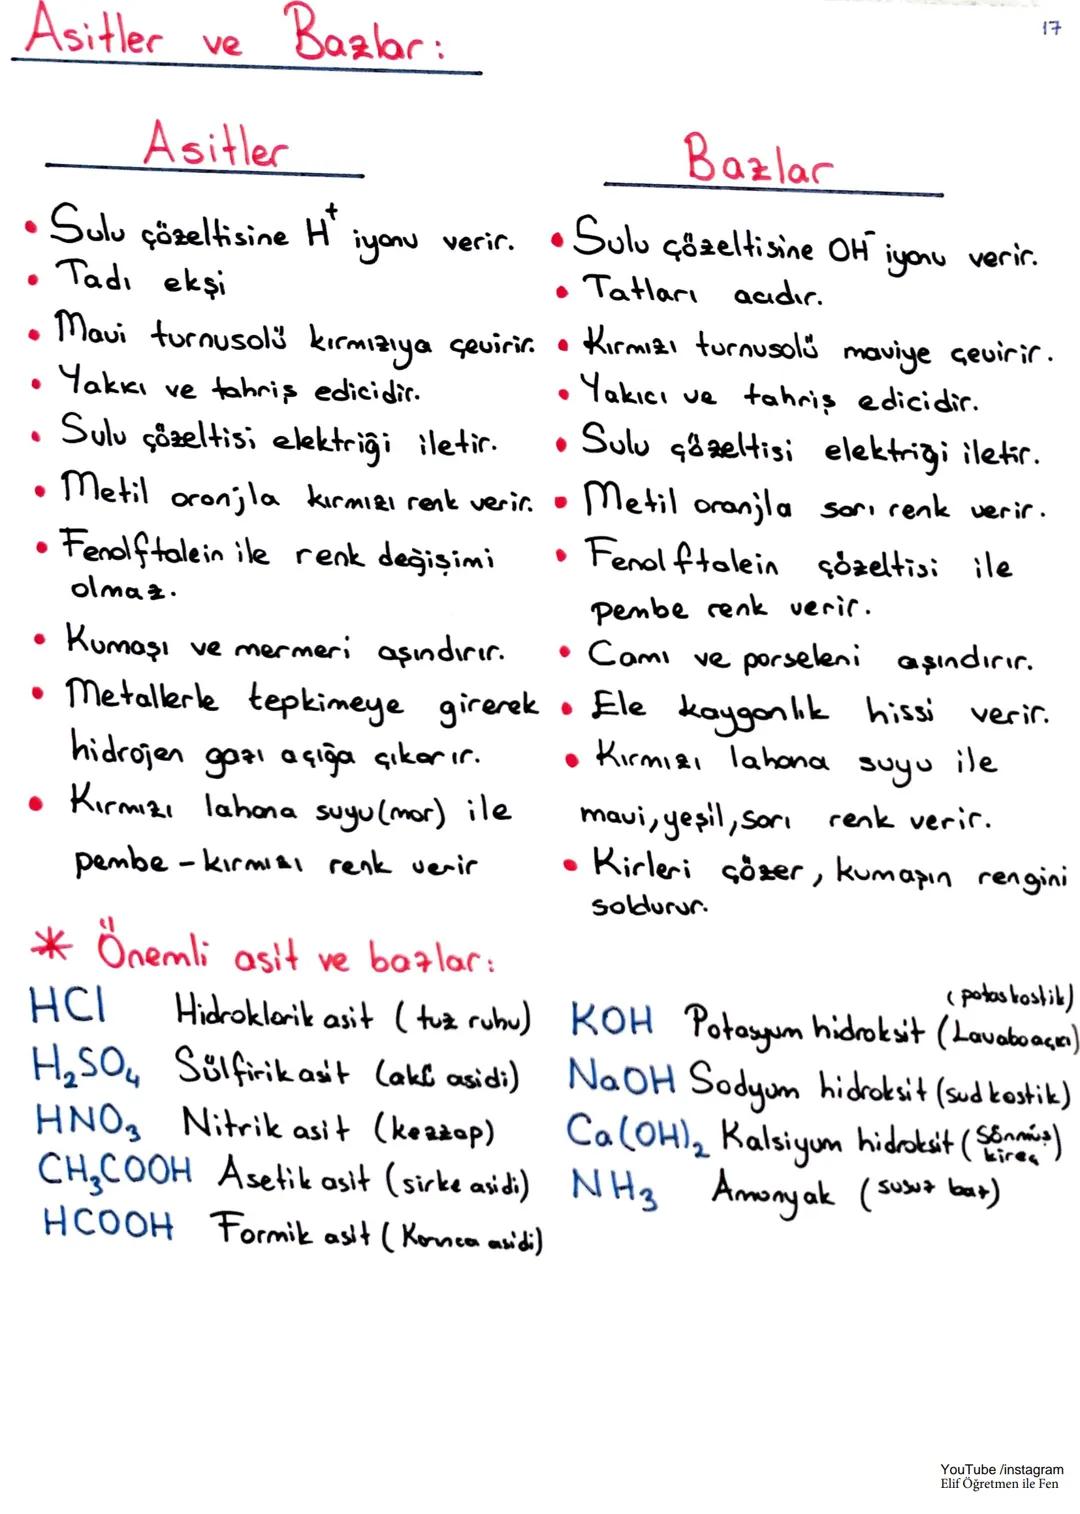 Asitler ve Bazlar:
17
Asitler
• Sulu çözeltisine H⁺ iyonu verir.
• Tadı ekşi
• Mavi turnusolü kırmızıya çevirir.
• Yakıcı ve tahriş edicidir.
• Sulu çözeltisi elektriği iletir.
• Metil oranjla kırmızı renk verir.
• Fenolftalein ile renk değişimi
olmaz.
• Kumaşı ve mermeri aşındırır.
• Metallerle tepkimeye girerek
hidrojen gazı açığa çıkarır.
• Kırmızı lahana suyu(mor) ile
pembe - kırmızı renk verir
Bazlar
• Sulu çözeltisine OH⁻ iyonu verir.
• Tatları acıdır.
• Kırmızı turnusolü maviye çevirir.
• Yakıcı ve tahriş edicidir.
• Sulu çözeltisi elektriği iletir.
• Metil oranjla sarı renk verir.
• Fenolftalein çözeltisi ile
pembe renk verir.
• Camı ve porseleni aşındırır.
• Ele kayganlık hissi verir.
• Kırmızı lahana suyu ile
mavi, yeşil, sarı renk verir.
• Kirleri çözer, kumaşın rengini
soldurur.
* Önemli asit ve bazlar:
HCl Hidroklorik asit (tuz ruhu)
H₂SO₄ Sülfirik asit (akü asidi)
HNO₃ Nitrik asit (kezzap)
CH₃COOH Asetik asit (sirke asidi)
HCOOH Formik asit (Karınca asidi)
(potas kostik)
KOH Potasyum hidroksit (Lavabo açıcı)
NaOH Sodyum hidroksit (sud kostik)
Ca(OH)₂ Kalsiyum hidroksit (Sönmüş kireç)
NH₃ Amonyak (susuz baz)
YouTube /instagram
Elif Öğretmen ile Fen